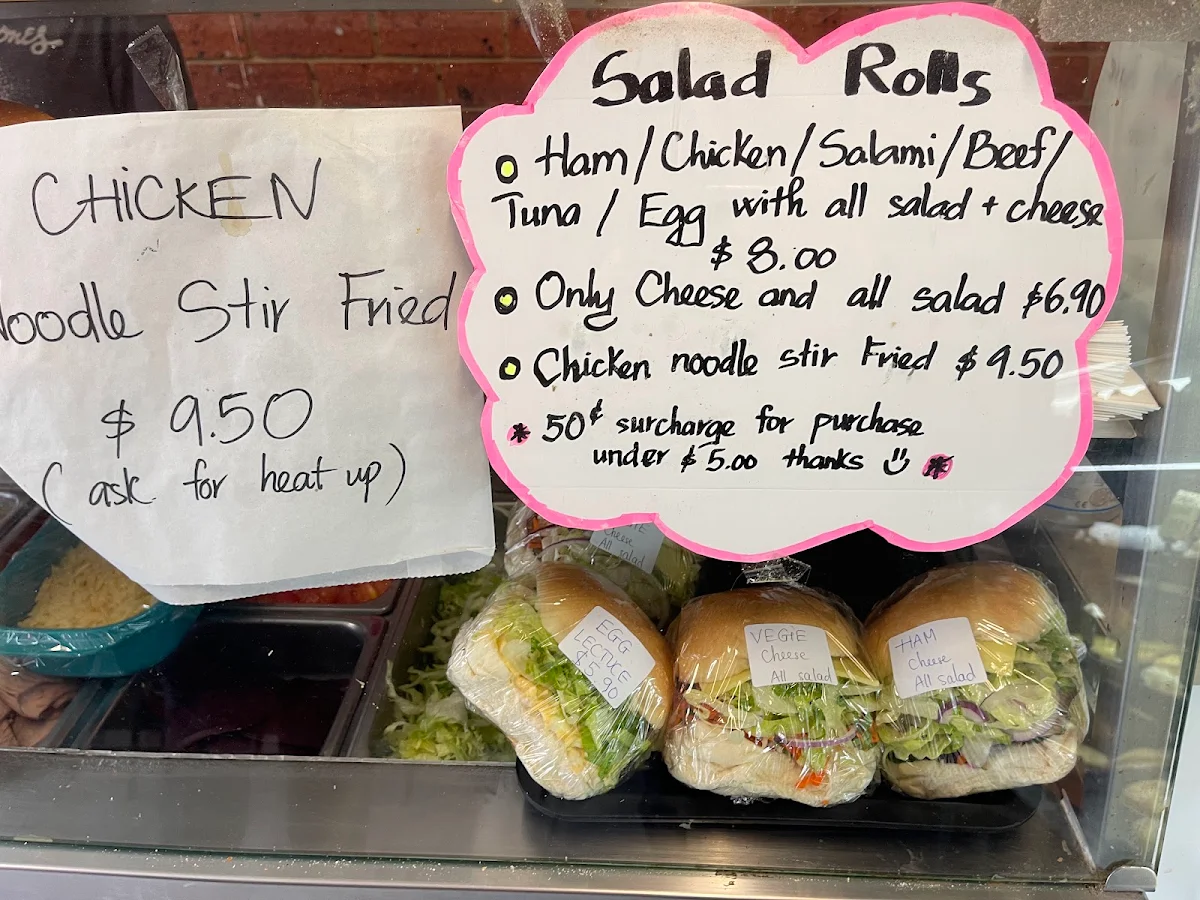 CHiCKEN
Noodle Stir Fried
$ 9.50
( ask for heat up)
Salad Rolls
Ham/Chicken/Salami/Beef/
Tuna / Egg with all salad + cheese
$ 8.00
Only Cheese and all salad $6.90
Chicken noodle stir Fried $ 9.50
* 50¢ surcharge for purchase
under $ 5.00 thanks ☺ *
Cheese
All salad
EGG
LECTUCE
$5.90
VEGIE
Cheese
All salad
HAM
Cheese
All salad